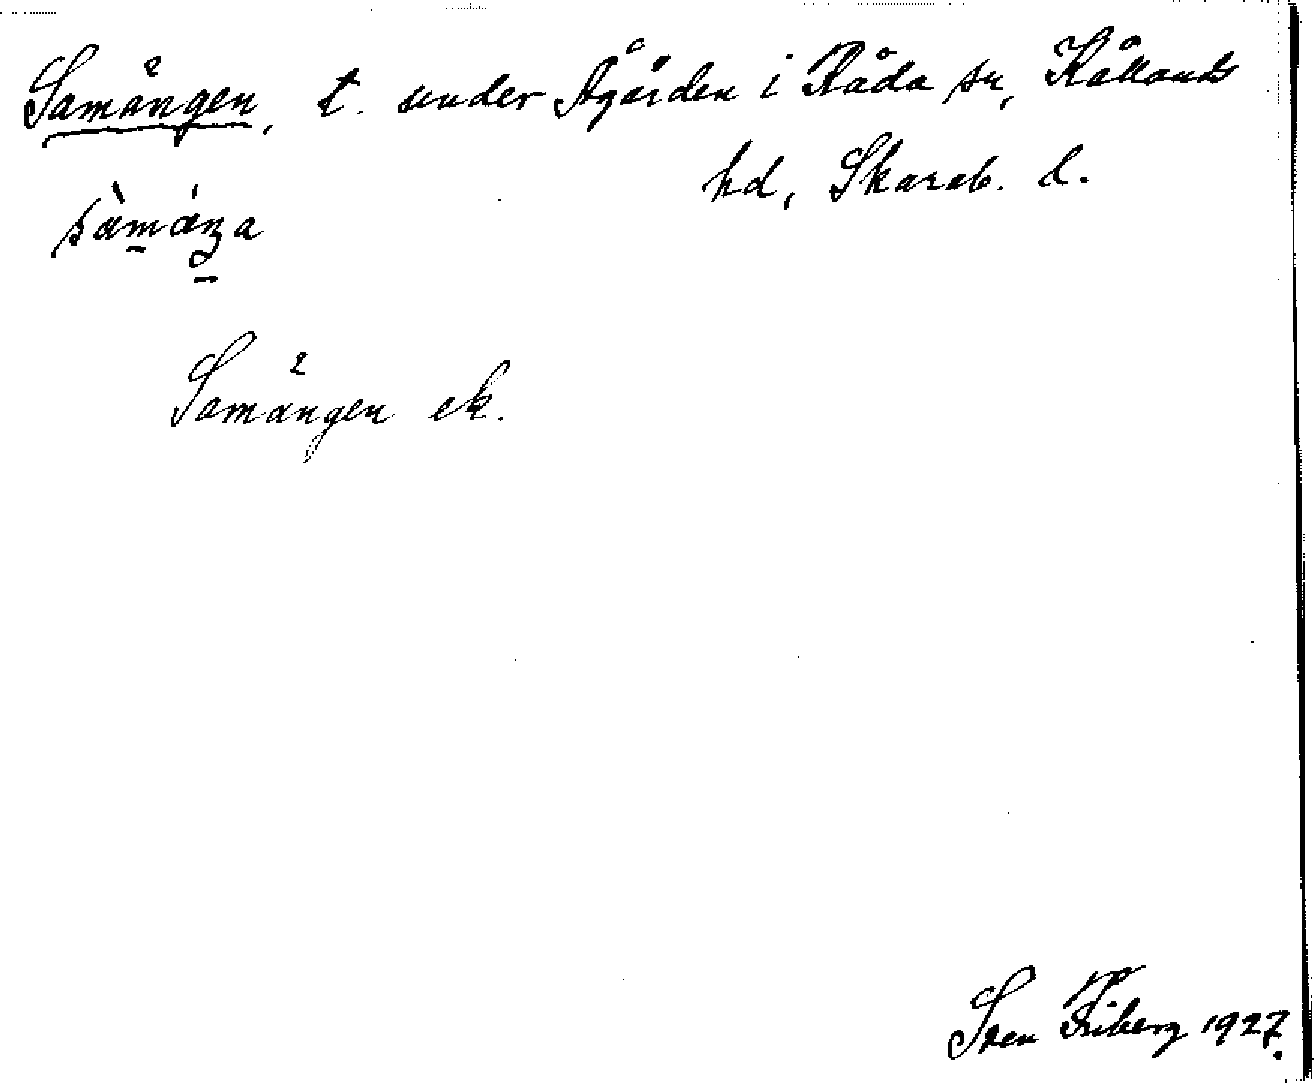 Samängen, t. under Ågärden i Råda sn, Kållands
hd, Skarab. l.
sàmáŋa
Samängen ek.
Sven Friberg 1927.